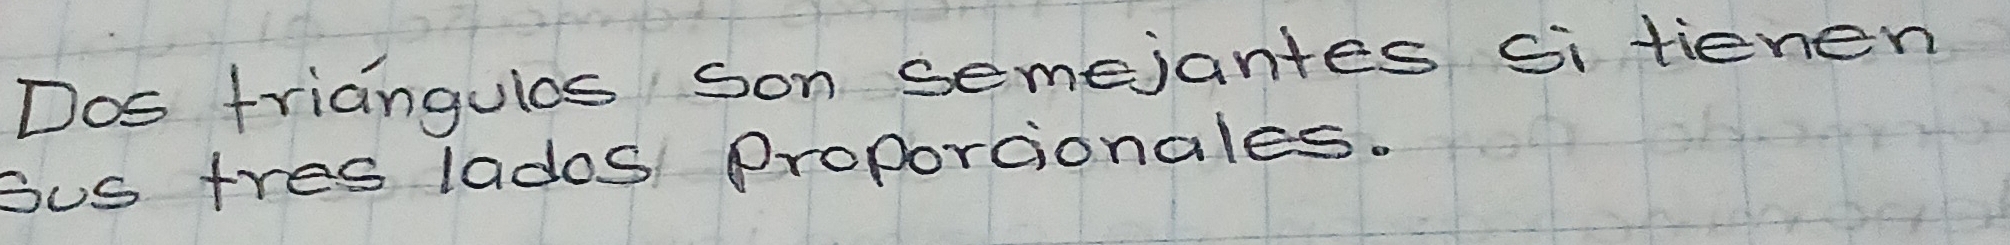 Dos triángulos son semejantes si tienen
sus tres lados proporcionales.